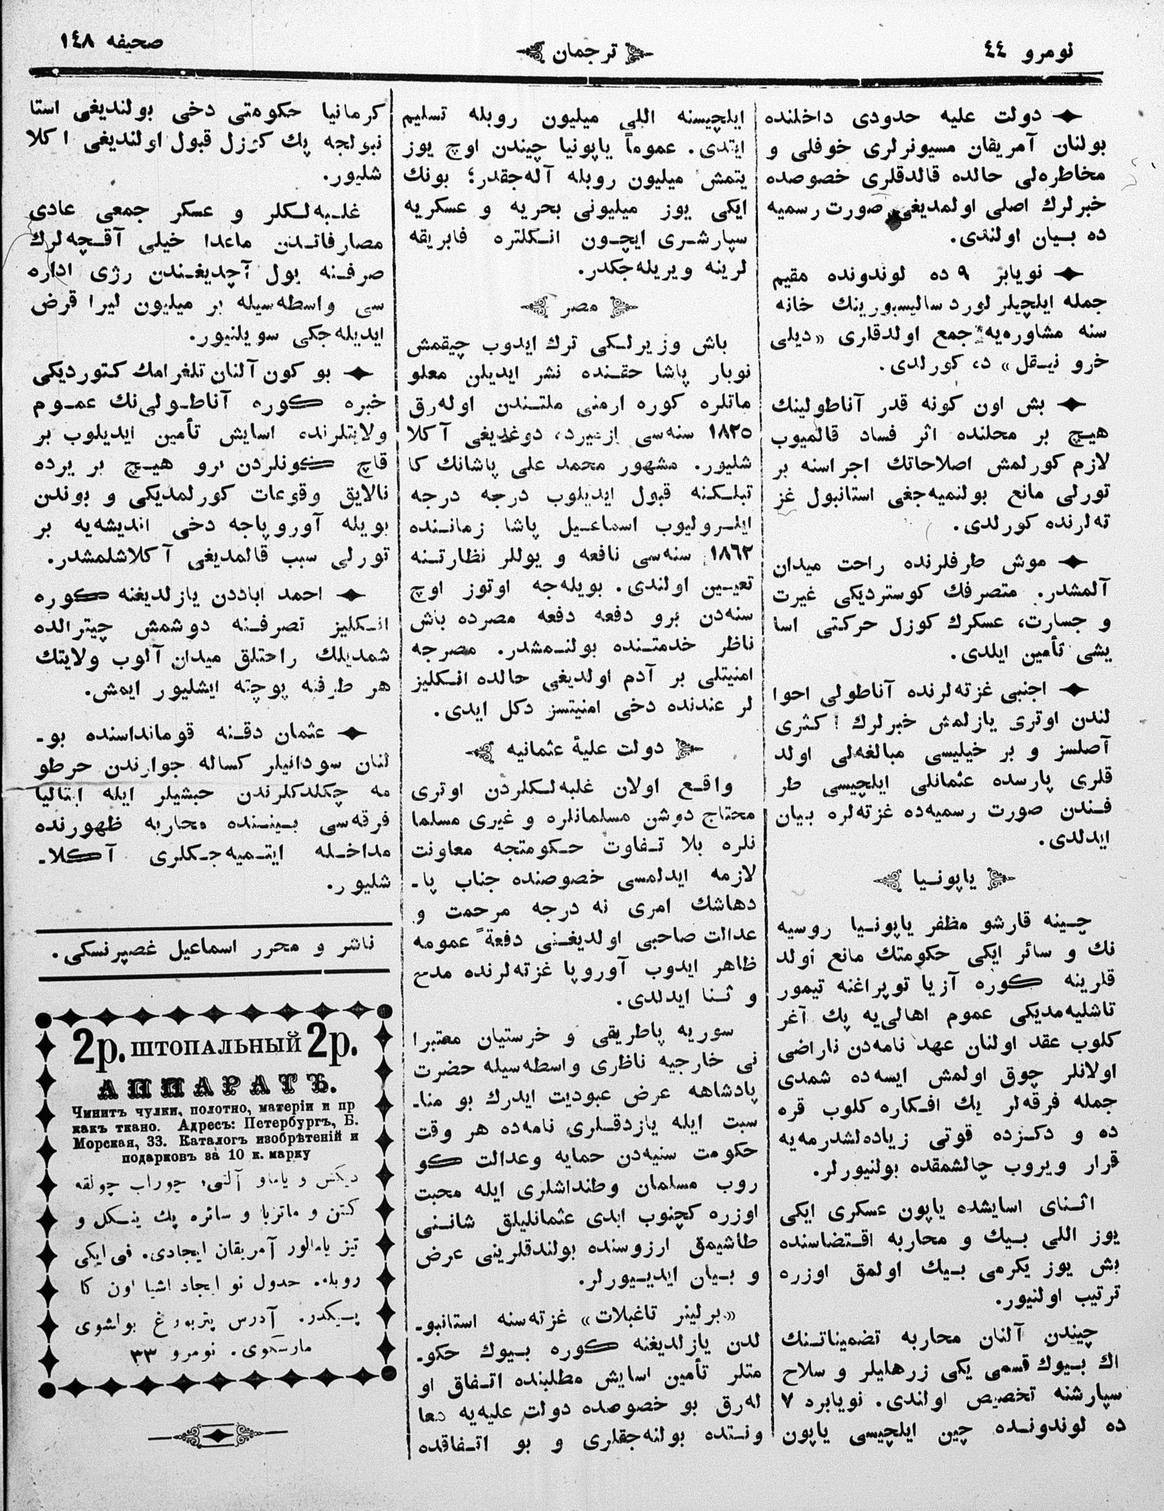 نومرو ٤٤
ترجمان
صحیفه ١٤٨
دولت علیه حدودی داخلنده
بولنان آمریقان مسیونرلری خوفلی و
مخاطره‌لی حالده قالدقلری خصوصده
خبرلرك اصلی اولمدیغی صورت رسمیه
ده بیان اولندی.
نویابر ٩ ده لوندونده مقیم
جمله ایلچیلر لورد سالیسبورینك خانه
سنه مشاوره‌یه جمع اولدقلری «دیلی
خرو نیقل» ده کورلدی.
بش اون کونه قدر آناطولینك
هیچ بر محلنده اثر فساد قالمیوب
لازم کورلمش اصلاحاتك اجراسنه بر
تورلی مانع بولنمیه‌جغی استانبول غز
ته‌لرنده کورلدی.
موش طرفلرنده راحت میدان
آلمشدر. متصرفك کوستردیکی غیرت
و جسارت، عسکرك کوزل حرکتی اسا
یشی تأمین ایلدی.
اجنبی غزته‌لرنده آناطولی احوا
لندن اوتری یازلمش خبرلرك اکثری
آصلسز و بر خیلیسی مبالغه‌لی اولد
قلری پارسده عثمانلی ایلچیسی طر
فندن صورت رسمیه‌ده غزته‌لره بیان
ایدلدی.
یاپونیا
چینه قارشو مظفر یاپونیا روسیه
نك و سائر ایکی حکومتك مانع اولد
قلرینه کوره آزیا توپراغنه تیمور
تاشلیه‌مدیکی عموم اهالی‌یه پك آغر
کلوب عقد اولنان عهد نامه‌دن ناراضی
اولانلر چوق اولمش ایسه‌ده شمدی
جمله فرقه‌لر یك افکاره کلوب قره
ده و دکزده قوتی زیاده‌لشدرمه‌یه
قرار ویروب چالشمقده بولنیورلر.
اثنای اسایشده یاپون عسکری ایکی
یوز اللی بیك و محاربه اقتضاسنده
بش یوز یکرمی بیك اولمق اوزره
ترتیب اولنیور.
چیندن آلنان محاربه تضمیناتنك
اك بیوك قسمی یکی زرهلیلر و سلاح
سپارشنه تخصیص اولندی. نویابره ٧
ده لوندونده چین ایلچیسی یاپون
ایلچیسنه اللی میلیون روبله تسلیم
ایتدی. عموماً یاپونیا چیندن اوچ یوز
یتمش میلیون روبله آله‌جقدر؛ بونك
ایکی یوز میلیونی بحریه و عسکریه
سپارشری ایچون انکلتره فابریقه
لرینه ویریله‌جکدر.
مصر
باش وزیرلکی ترك ایدوب چیقمش
نوبار پاشا حقنده نشر ایدیلن معلو
ماتلره کوره ارمنی ملتندن اوله‌رق
١٨٢٥ سنه‌سی ازمیرده دوغدیغی آکلا
شلیور. مشهور محمد علی پاشانك کا
تبلکنه قبول ایدیلوب درجه درجه
ایلرولیوب اسماعیل پاشا زماننده
١٨٦٣ سنه‌سی نافعه و یوللر نظارتنه
تعیین اولندی. بویله‌جه اوتوز اوچ
سنه‌دن برو دفعه دفعه مصرده باش
ناظر خدمتنده بولنمشدر. مصرجه
امنیتلی بر آدم اولدیغی حالده انکلیز
لر عندنده دخی امنیتسز دکل ایدی.
دولت علیهٔ عثمانیه
واقع اولان غلبه‌لکلردن اوتری
محتاج دوشن مسلمانلره و غیری مسلما
نلره بلا تفاوت حکومتجه معاونت
لازمه ایدلمسی خصوصنده جناب پا-
دهاشك امری نه درجه مرحمت و
عدالت صاحبی اولدیغنی دفعةً عمومه
ظاهر ایدوب آوروپا غزته‌لرنده مدح
و ثنا ایدلدی.
سوریه پاطریقی و خرستیان معتبرا
نی خارجیه ناظری واسطه‌سیله حضرت
پادشاهه عرض عبودیت ایدرك بو منا-
سبت ایله یازدقلری نامه‌ده هر وقت
حکومت سنیه‌دن حمایه وعدالت کو
روب مسلمان وطنداشلری ایله محبت
اوزره کچنوب ابدی عثمانلیلق شانی
طاشیمق ارزوسنده بولندقلرینی عرض
و بیان ایدیورلر.
«برلینر تاغبلات» غزته‌سنه استانبو-
لدن یازلدیغنه کوره بیوك حکو-
متلر تأمین اسایش مطلبنده اتفاق او
له‌رق بو خصوصده دولت علیه‌یه معا
ونتده بولنه‌جقلری و بو اتفاقده
کرمانیا حکومتی دخی بولندیغی استا
نبولجه پك کوزل قبول اولندیغی اکلا
شلیور.
غلبه‌لکلر و عسکر جمعی عادی
مصارفاتدن ماعدا خیلی آقچه‌لرك
صرفنه یول آچدیغندن رژی اداره
سی واسطه‌سیله بر میلیون لیرا قرض
ایدیله‌جکی سویلنیور.
بو کون آلنان تلغرامك کتوردیکی
خبره کوره آناطولی‌نك عموم
ولایتلرنده اسایش تأمین ایدیلوب بر
قاچ کونلردن برو هیچ بر یرده
نالایق وقوعات کورلمدیکی و بوندن
بویله آوروپاجه دخی اندیشه‌یه بر
تورلی سبب قالمدیغی آکلاشلمشدر.
احمد اباددن یازلدیغنه کوره
انکلیز تصرفنه دوشمش چیترالده
شمدیلك راحتلق میدان آلوب ولایتك
هر طرفنه پوچته ایشلیور ایمش.
عثمان دقنه قومانداسنده بو-
لنان سودانیلر کساله جوارندن خرطو
مه چکلدکلرندن حبشیلر ایله ایتالیا
فرقه‌سی بیننده محاربه ظهورنده
مداخله ایتمیه‌جکلری آکلا-
شلیور.
ناشر و محرر اسماعیل غصپرنسکی.
2р. ШТОПАЛЬНЫЙ 2р.
АППАРАТЪ.
Чинитъ чулки, полотно, матеріи и пр
какъ ткано. Адресъ: Петербургъ, Б.
Морская, 33. Каталогъ изобрѣтеній и
подарковъ за 10 к. марку
دیکش و یاماو آلتی، چوراب چولقه
کتن و ماتریا و سائره پك ینکل و
تیز یامالور آمریقان ایجادی. فی ایکی
روبله. جدول نو ایجاد اشیا اون کا
پیکدر. آدرس پتربورغ بولشوی
مارسکوی. نومرو ٣٣